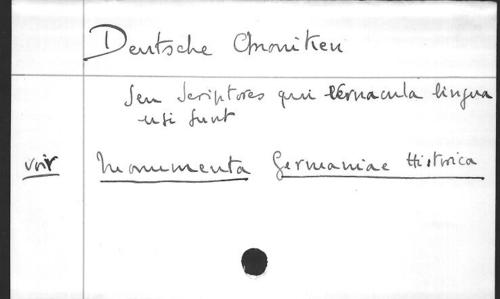 Deutsche Chroniken
Seu Scriptores qui vernacula lingua
usi sunt
voir Monumenta Germaniae Historica